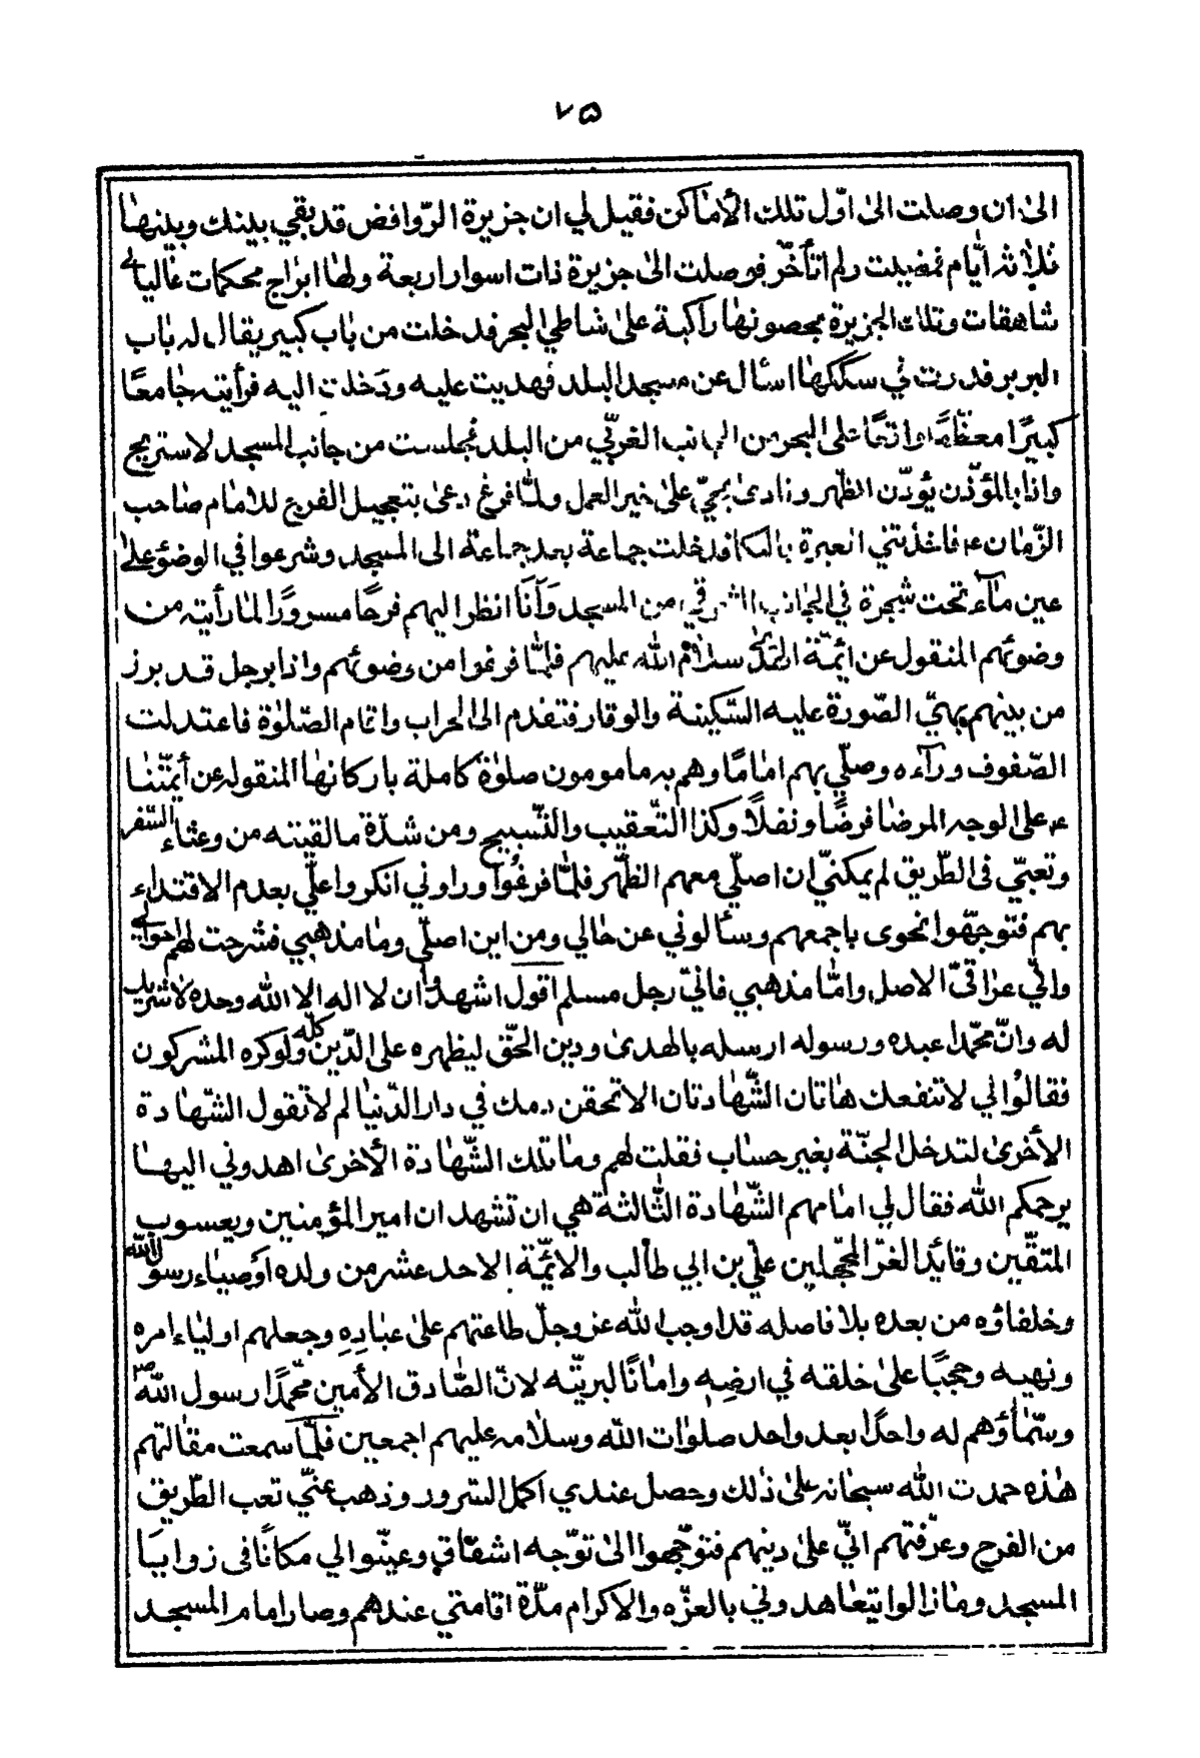 ٧۵
الىٰ ان وصلت الىٰ اوّل تلك الأماكن فقيل لي ان جزيرة الرّوافض قد بقي بينك وبينها
ثلاثة ايّام فمضيت ولم اتأخّر فوصلت الىٰ جزيرة ذات اسوار اربعة ولها ابراج محكمات عاليات
شاهقات وتلك الجزيرة بحصونها راكبة علىٰ شاطئ البحر فدخلت من باب كبير يقال له باب
البربر فدرت في سككها اسأل عن مسجد البلد فهديت عليه ودخلت اليه فرأيته جامعًا
كبيرًا معظّمًا واقعًا علىٰ البحر من الجانب الغربّي من البلد فجلست من جانب المسجد لاستريح
واذا بالمؤذّن يؤذّن الظهر ونادىٰ بحيّ علىٰ خير العمل ولمّا فرغ دعىٰ بتعجيل الفرج للامام صاحب
الزّمان ع فاخذتني العبرة بالبكا فدخلت جماعة بعد جماعة الى المسجد وشرعوا في الوضوء علىٰ
عين مآء تحت شجرة في الجانب الشرقي من المسجد وَاَنَا انظر اليهم فرحًا مسرورًا لما رأيته من
وضوئهم المنقول عن ائمّة الهدىٰ سلام الله عليهم فلمّا فرغوا من وضوئهم واذا برجل قد برز
من بينهم بهيّ الصّورة عليه السّكينة والوقار فتقدم الى المحراب واقام الصّلوٰة فاعتدلت
الصّفوف ورآءه وصلّي بهم امامًا وهم به مامومون صلوٰة كاملة باركانها المنقوله عن أيمّتنا
ع على الوجه المرضا فرضًا ونفلًا وكذا التّعقيب والتّسبيح ومن شدّة ما لقيته من وعثاء السّفر
وتعبّي فى الطّريق لم يمكنّي ان اصلّي معهم الظّهر فلمّا فرغوا وراوني انكروا علّي بعدم الاقتداء
بهم فتوجّهوا نحوى باجمعهم وسئالوني عن حالي ومن اين اصلّي وما مذهبي فشرحت لهم احوالي
وانّي عراقىّ الاصل وامّا مذهبي فانيّ رجل مسلم اقول اشهد وان لا اله الا الله وحده لا شريك
له وانّ محمّدا عبده ورسوله ارسله بالهدىٰ ودين الحقّ ليظهره على الدّين كلّه ولو كره المشركون
فقالوُا لي لا تنفعك هاتان الشّهادتان الا تحقن دمك في دار الدّنيا لم لا تقول الشّهادة
الأخرىٰ لتدخل الجنّة بغير حساب فقلت لهم وما تلك الشّهادة الأخرىٰ اهدوني اليها
يرحمكم الله فقال لي امامهم الشّهادة الثّالثة هي ان تشهد ان امير المؤمنين ويعسوب
المتقّين وقائد الغرّ المحجّلين عليّ بن ابي طالب والائمّة الاحد عشر من ولده اوصياء رسول الله
وخلفاؤه من بعده بلا فاصله قد اوجب الله عز وجلّ طاعتهم علىٰ عبادِهِ وجعلهم اولياء امره
ونهيه وحججًا علىٰ خلقه في ارضِه وامانًا لبريّته لانّ الصّادق الأمين محمّدًا رسول الله ص
وسمّاؤهم له واحدًا بعد واحد صلوات الله وسلامه عليهم اجمعين فلمّا سمعت مقالتهم
هٰذه حمدت الله سبحانه علىٰ ذٰلك وحصل عندي اكمل السّرور وذهب عنّي تعب الطّريق
من الفرح وعرّفتهم انّي علىٰ دينهم فتوجّهوا الىٰ توّجه اشفاق وعيّنوا لي مكانًا في زوايا
المسجد وما زالوا يتعاهدوني بالعزّه والاكرام مدّة اقامتي عندهم وصار امام المسجد